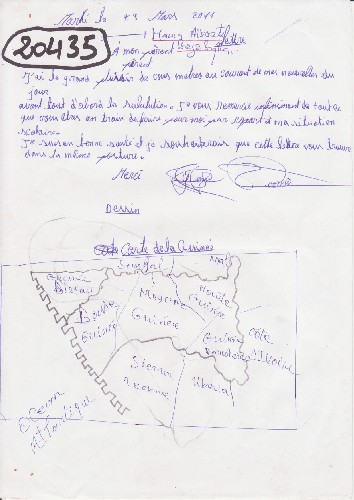 Mardi le 29 Mars 2011
20435
lettre
A mon parent
parent
J'ai le grand plaisir de vous mettre au courant de mes nouvelles du
jour
avant tout d'abord la salutation. Je vous remercie infiniment de tout ce
que vous êtes en train de faire pour moi par rapport à ma situation
scolaire.
Je suis en bonne santé et je souhaiterais que cette lettre vous trouve
dans la même posture.
Merci
Dessin
Carte de la Guinée
Sénégal
Mali
Guinée
Bissau
Basse
Guinée
Moyenne
Guinée
Haute
Guinée
Guinée
Forestière
Côte
d'Ivoire
Sierra
Leonne
Liberia
Oceun
Atlantique